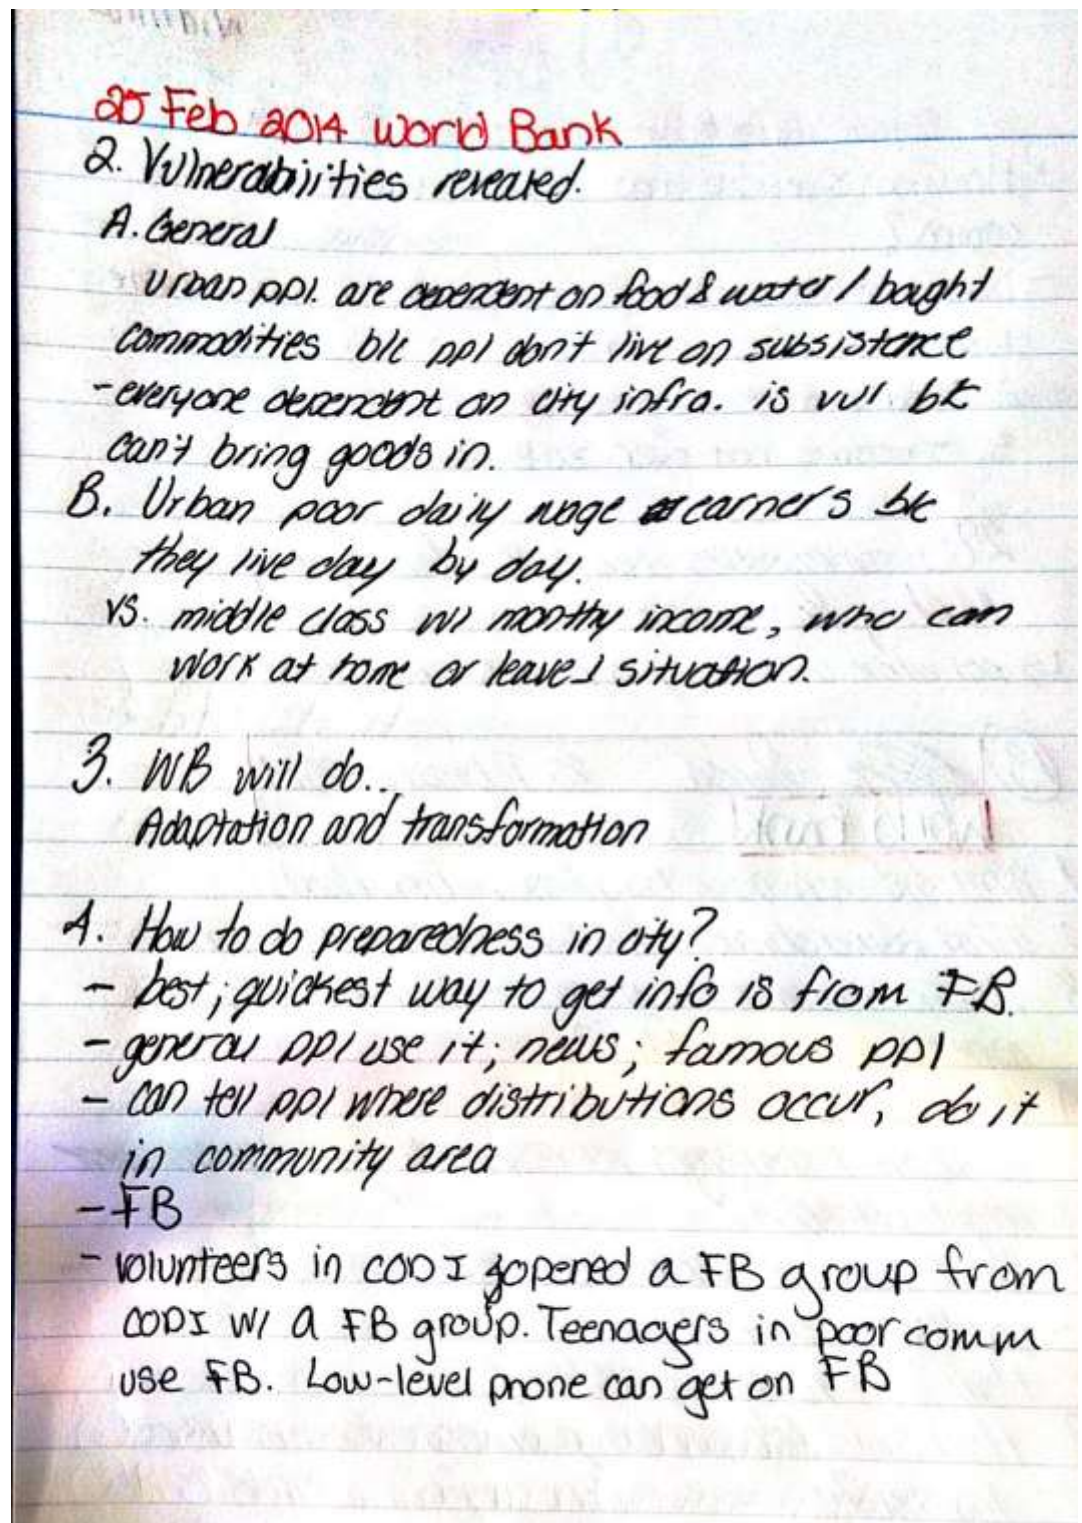 25 Feb 2014 World Bank
2. Vulnerabilities revealed.
A. General
Urban ppl. are dependent on food & water / bought
commodities b/c ppl don't live on subsistence
- everyone dependent on city infra. is vul bk
can't bring goods in.
B. Urban poor daily wage earners bk
they live day by day.
vs. middle class w/ monthly income, who can
work at home or leave situation.
3. WB will do..
Adaptation and transformation
4. How to do preparedness in city?
- best; quickest way to get info is from FB.
- general ppl use it; news; famous ppl
- can tell ppl where distributions occur, do it
in community area
- FB
- volunteers in CODI opened a FB group from
CODI w/ a FB group. Teenagers in poor comm
use FB. Low-level phone can get on FB